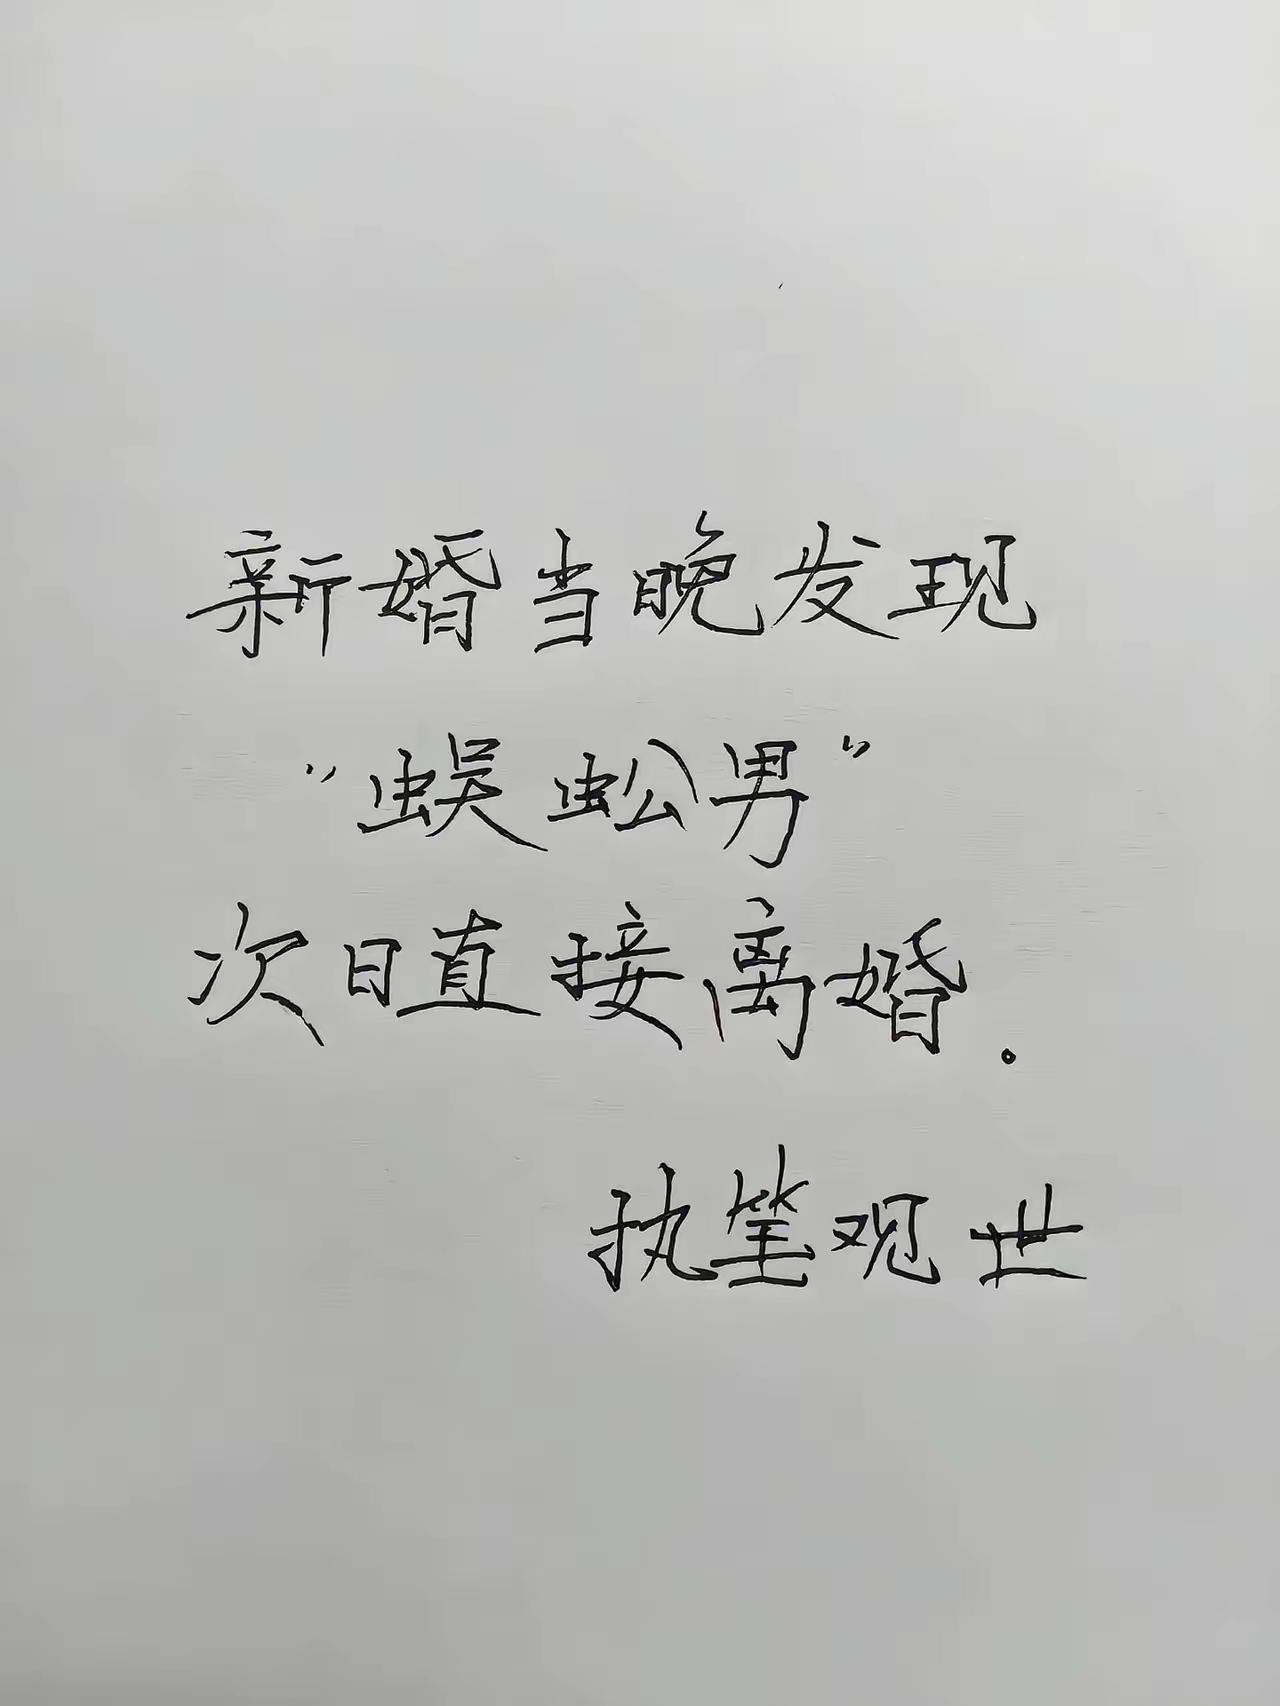 新婚当晚发现
“蜈蚣男”
次日直接离婚。
执笔观世